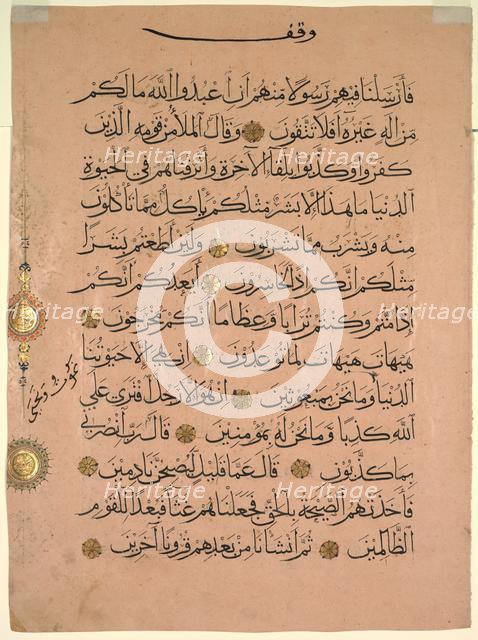 وقف
فَأَرْسَلْنَا فِيهِمْ رَسُولًا مِنْهُمْ أَنِ اعْبُدُوا اللَّهَ مَا لَكُمْ
مِنْ إِلَهٍ غَيْرُهُ أَفَلَا تَتَّقُونَ وَقَالَ الْمَلَأُ مِنْ قَوْمِهِ الَّذِينَ
كَفَرُوا وَكَذَّبُوا بِلِقَاءِ الْآخِرَةِ وَأَتْرَفْنَاهُمْ فِي الْحَيَوةِ
الدُّنْيَا مَا هَذَا إِلَّا بَشَرٌ مِثْلُكُمْ يَأْكُلُ مِمَّا تَأْكُلُونَ
مِنْهُ وَيَشْرَبُ مِمَّا تَشْرَبُونَ وَلَئِنْ أَطَعْتُمْ بَشَرًا
مِثْلَكُمْ إِنَّكُمْ إِذًا لَخَاسِرُونَ أَيَعِدُكُمْ أَنَّكُمْ
إِذَا مِتُّمْ وَكُنْتُمْ تُرَابًا وَعِظَامًا أَنَّكُمْ مُخْرَجُونَ
هَيْهَاتَ هَيْهَاتَ لِمَا تُوعَدُونَ إِنْ هِيَ إِلَّا حَيَوتُنَا
الدُّنْيَا وَمَا نَحْنُ بِمَبْعُوثِينَ إِنْ هُوَ إِلَّا رَجُلٌ افْتَرَى عَلَى
اللَّهِ كَذِبًا وَمَا نَحْنُ لَهُ بِمُؤْمِنِينَ قَالَ رَبِّ انْصُرْنِي
بِمَا كَذَّبُونِ قَالَ عَمَّا قَلِيلٍ لَيُصْبِحُنَّ نَادِمِينَ
فَأَخَذَتْهُمُ الصَّيْحَةُ بِالْحَقِّ فَجَعَلْنَاهُمْ غُثَاءً فَبُعْدًا لِلْقَوْمِ
الظَّالِمِينَ ثُمَّ أَنْشَأْنَا مِنْ بَعْدِهِمْ قُرُونًا آخَرِينَ
Heritage Heritage Heritage
Heritage Heritage Heritage
Heritage Heritage Heritage